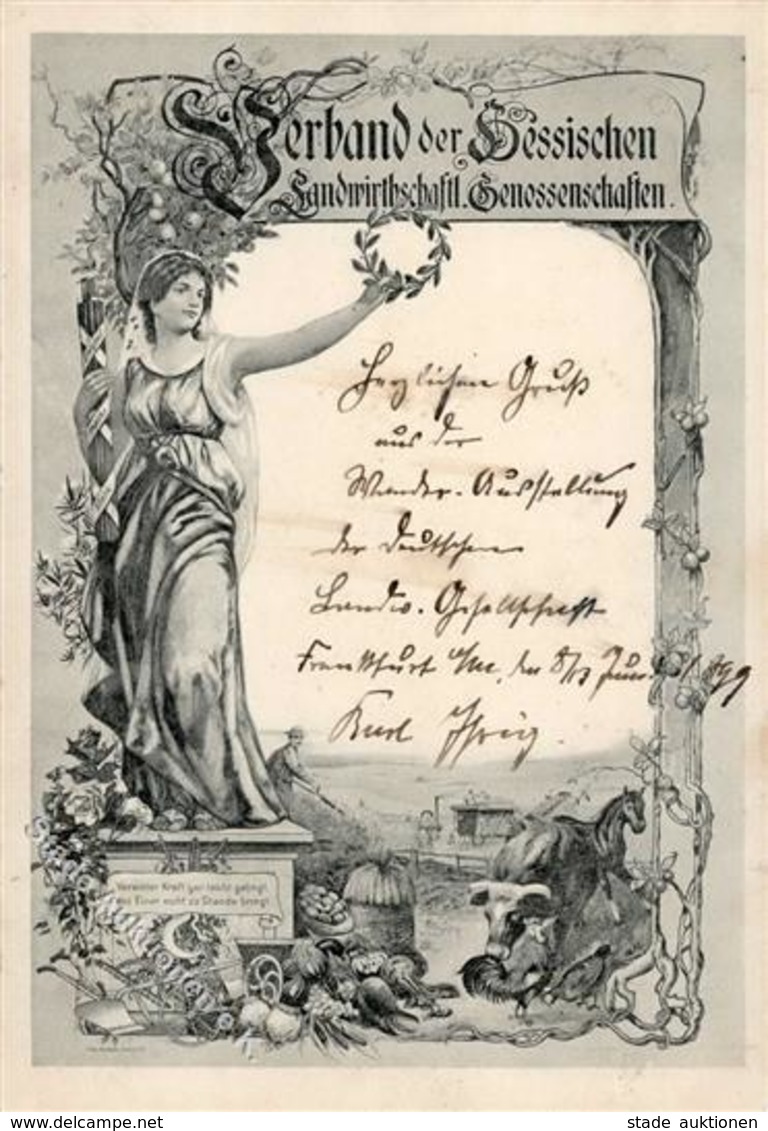 Verband der Hessischen
Landwirthschaftl. Genossenschaften.
Herzlichen Gruß
aus der
Wander-Ausstellung
der Deutschen
Landw. Gesellschaft
Frankfurt a/M, den 8/13 Juni 1899
Karl Ihrig.
Vereinter Kraft gar leicht gelingt,
was Einer nicht zu Stande bringt
www.ansichtskartenversand.com
stade auktionen